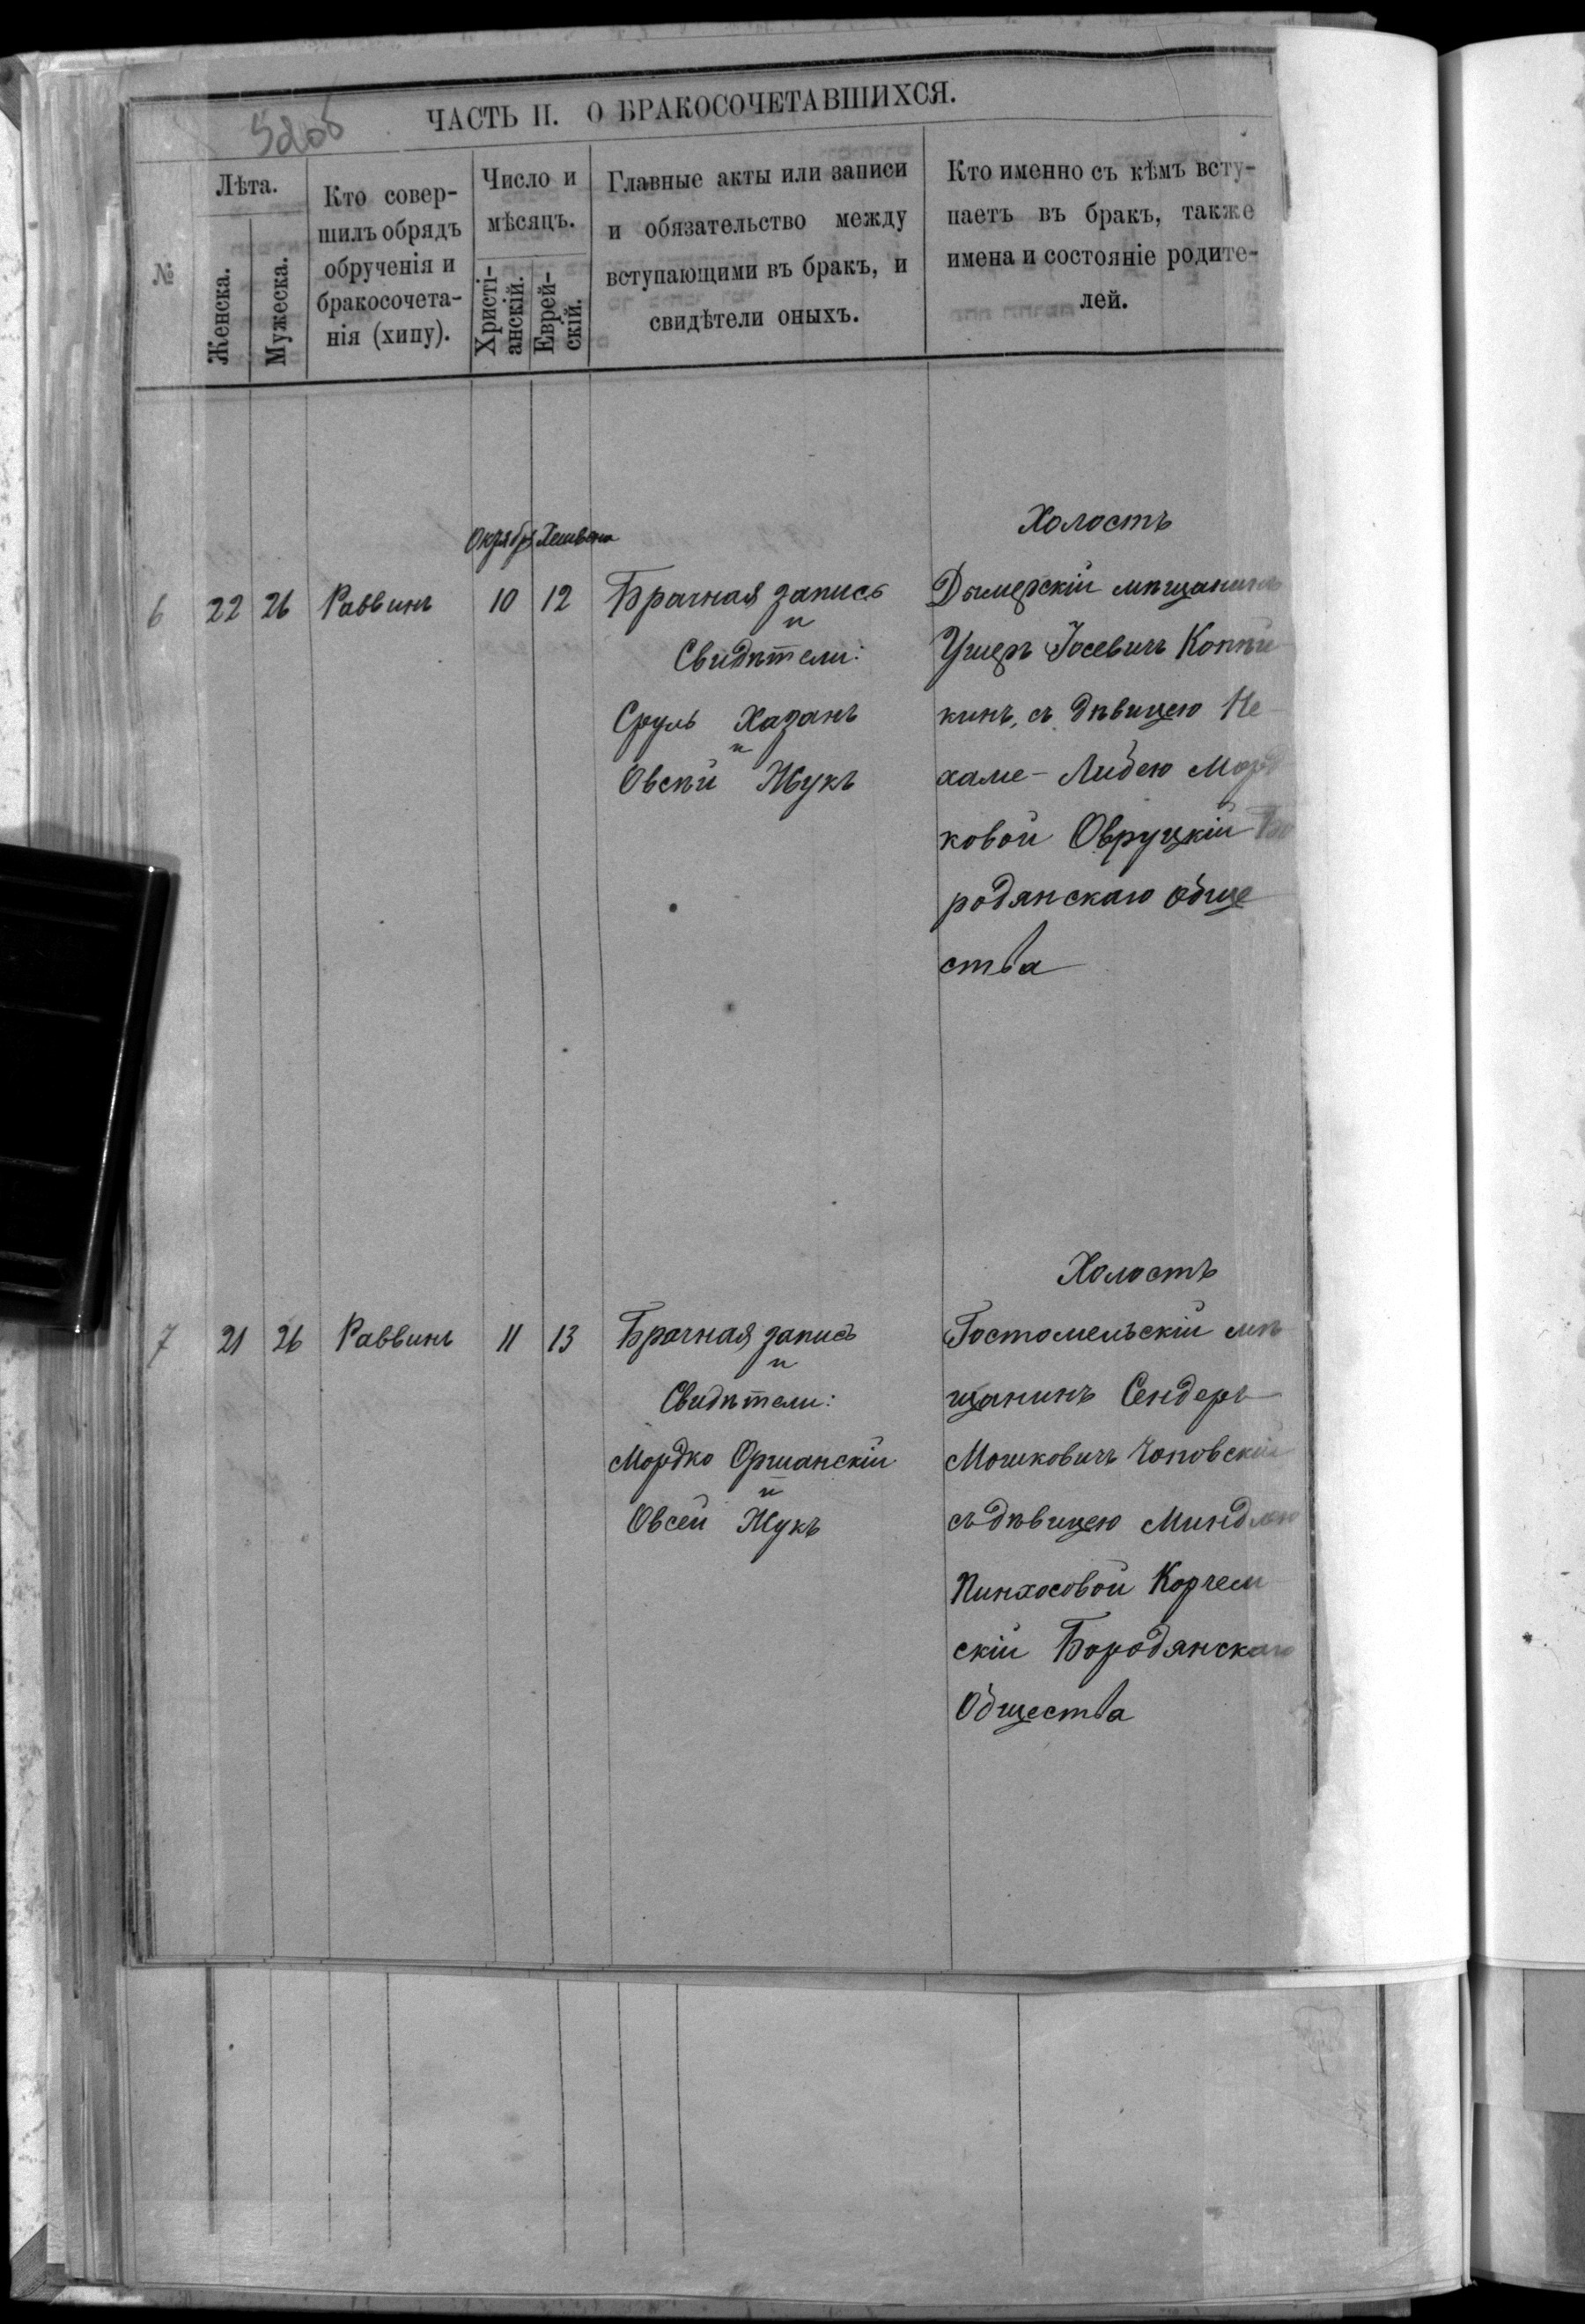 ЧАСТЬ II. О БРАКОСОЧЕТАВШИХСЯ.
№
Лѣта.
Женска.
Мужеска.
Кто совер-
шилъ обрядъ
обрученія и
бракосочета-
нія (хипу).
Число и
мѣсяцъ.
Христі-
анскій.
Еврей-
скій.
Главные акты или записи
и обязательство между
вступающими въ бракъ, и
свидѣтели оныхъ.
Кто именно съ кѣмъ всту-
паетъ въ бракъ, также
имена и состояніе родите-
лей.
6 22 26 Раввинъ
10 12
Брачная запись
и
Свидѣтели:
Сруль Хазанъ
и
Овсѣй Жукъ
Холостъ
Дымерскій мѣщанинъ
Ушеръ Іосевичъ Коппи-
кинъ, съ дѣвицею Не-
хаме-Либею Морд
ковой Овруцкій Бо
родянскаго обще
ства
7 21 26 Раввинъ 11 13
Брачная запись
и
Свидѣтели:
Мордко Оршанскій
и
Овсей Жукъ
Холостъ
Гостомельскій мѣ-
щанинъ Сендеръ
Мошковичъ Чоповскій
съ дѣвицею Миндлею
Пинхосовой Корчем-
скій Бородянскаго
Общества